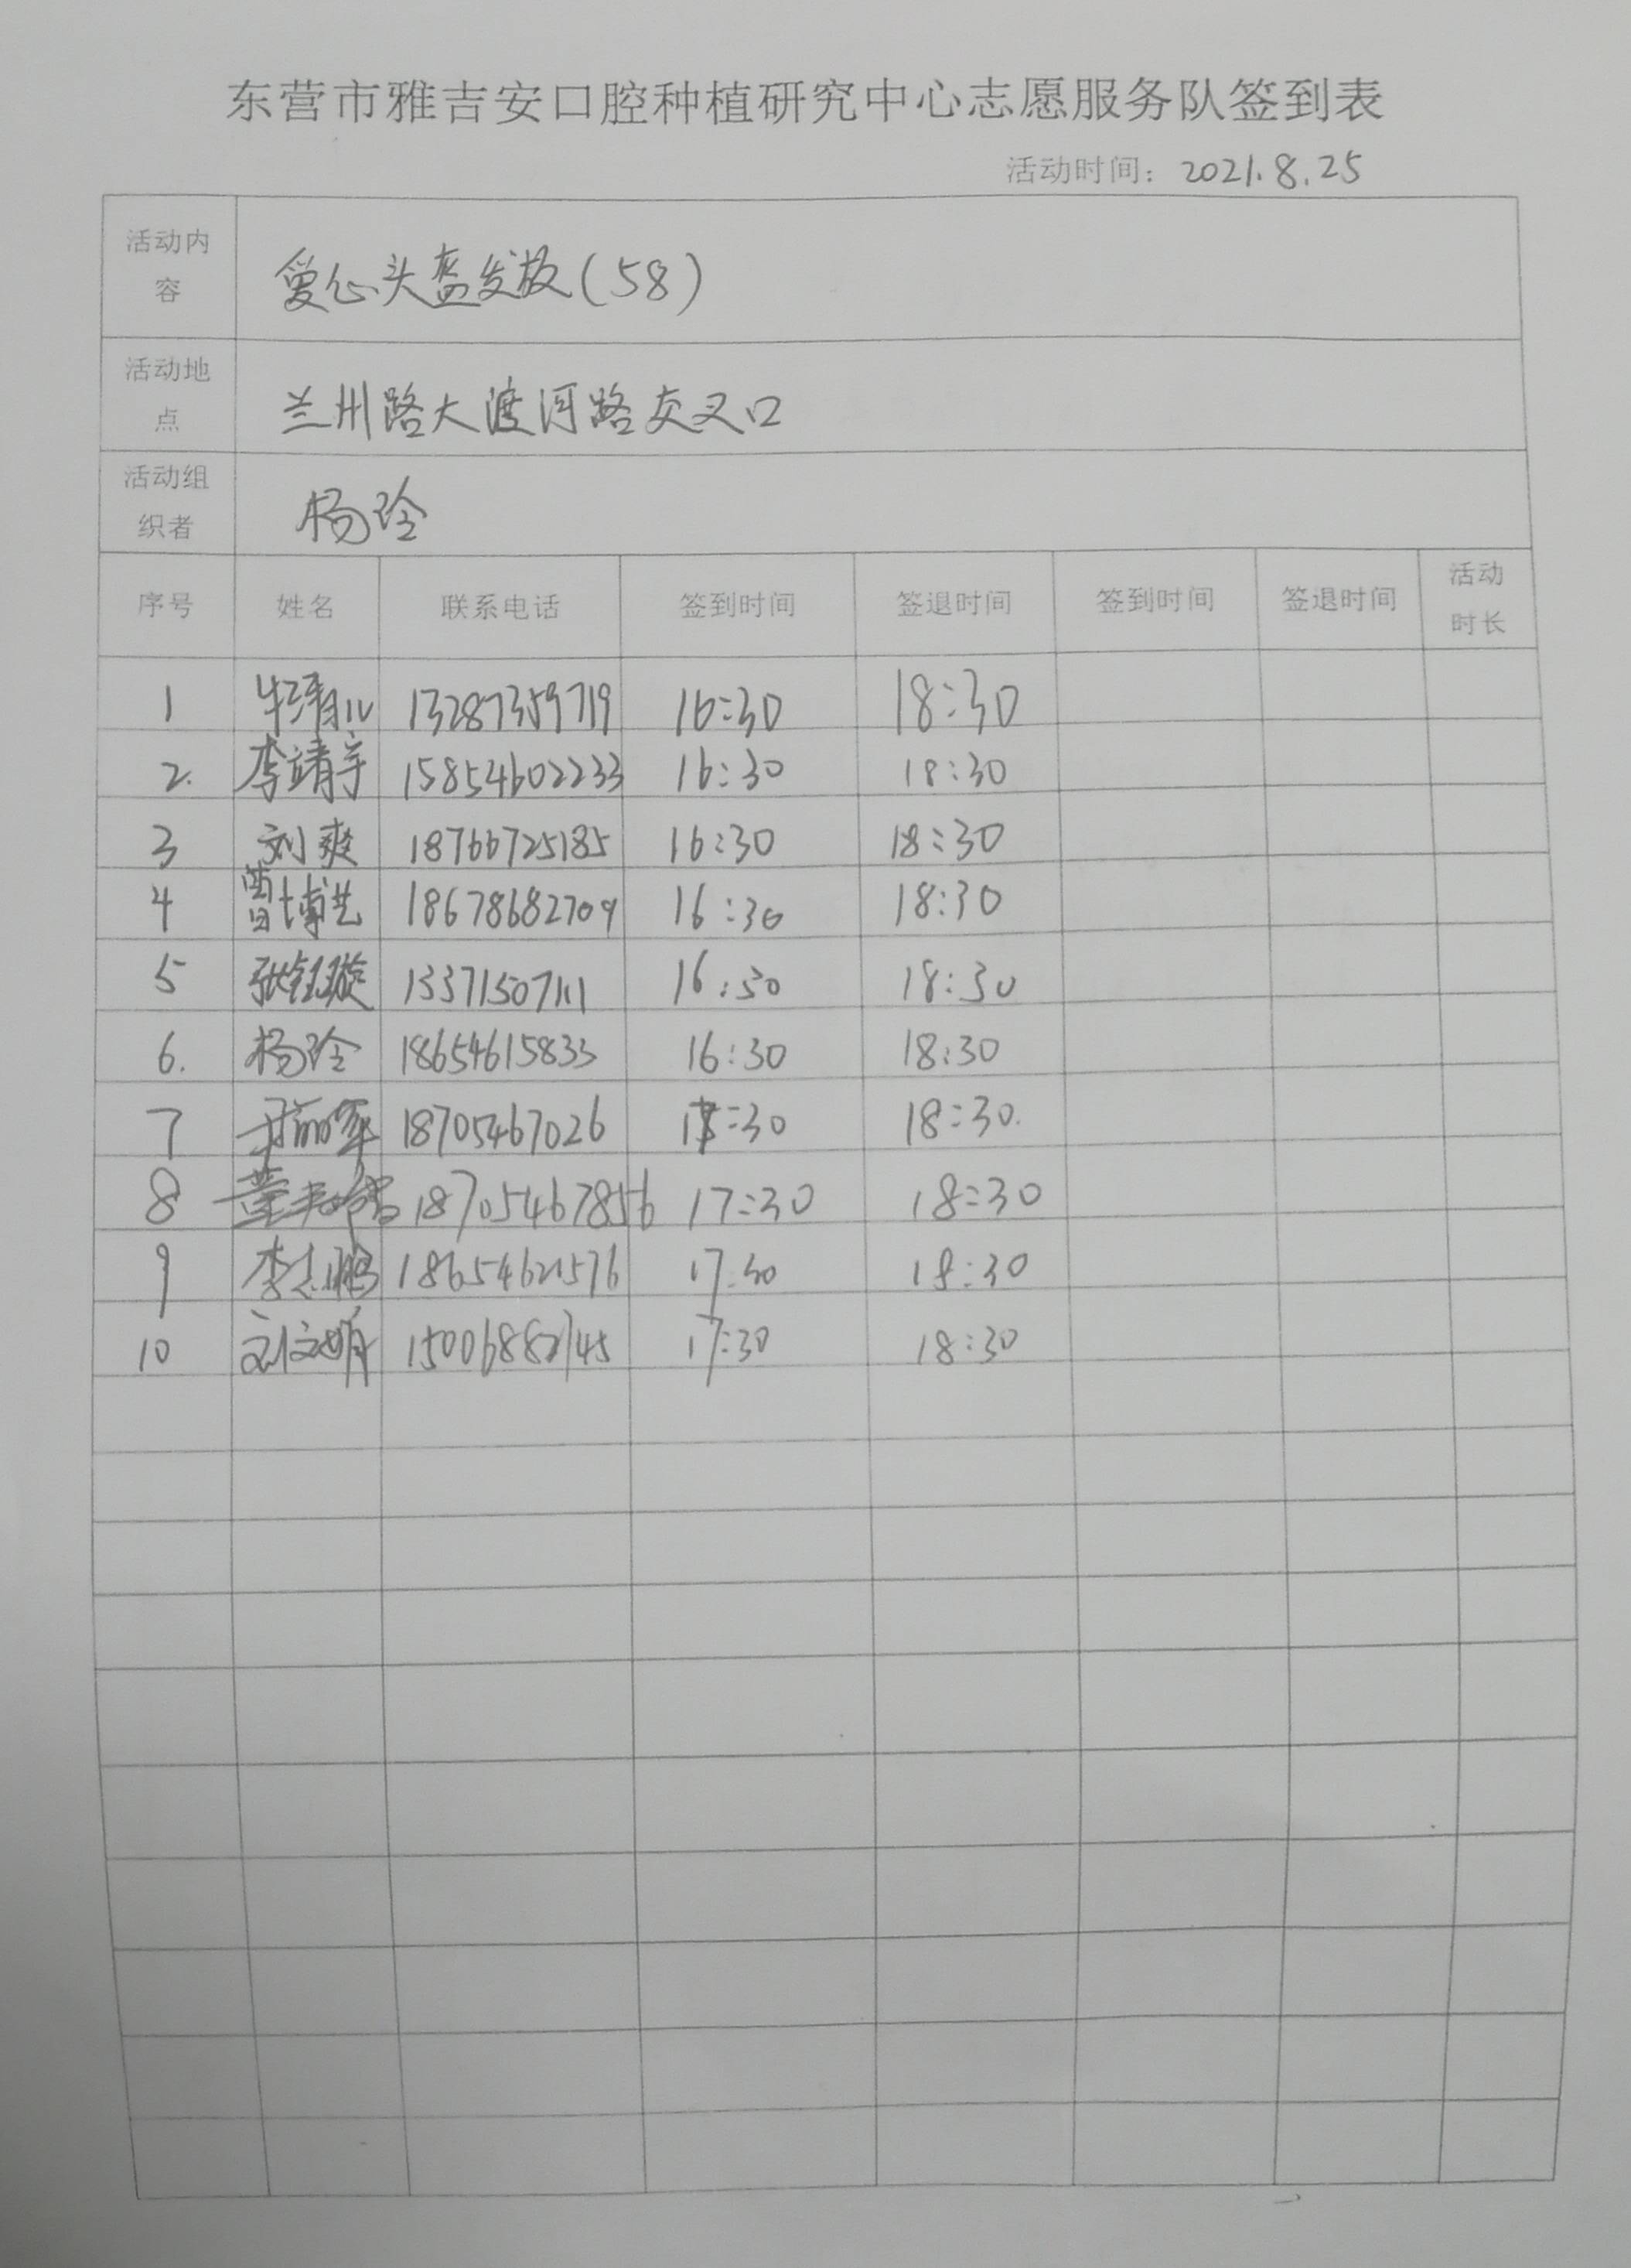 东营市雅吉安口腔种植研究中心志愿服务队签到表
活动时间：2021.8.25
活动内容 爱心头盔发放(58)
活动地点 兰州路大渡河路交叉口
活动组织者 杨玲
序号 姓名 联系电话 签到时间 签退时间 签到时间 签退时间 活动时长
1 13287359719 16:30 18:30
2. 李靖宇 15854602233 16:30 18:30
3 刘爽 18766725185 16:30 18:30
4 曹博艺 18678682709 16:30 18:30
5 张钰璇 13371507111 16:30 18:30
6. 杨玲 18654615833 16:30 18:30
7 18705467026 18:30.
8 18705467856 17:30 18:30
9 李志鹏 18654621576 17:30 18:30
10 刘文娟 15006882745 17:30 18:30